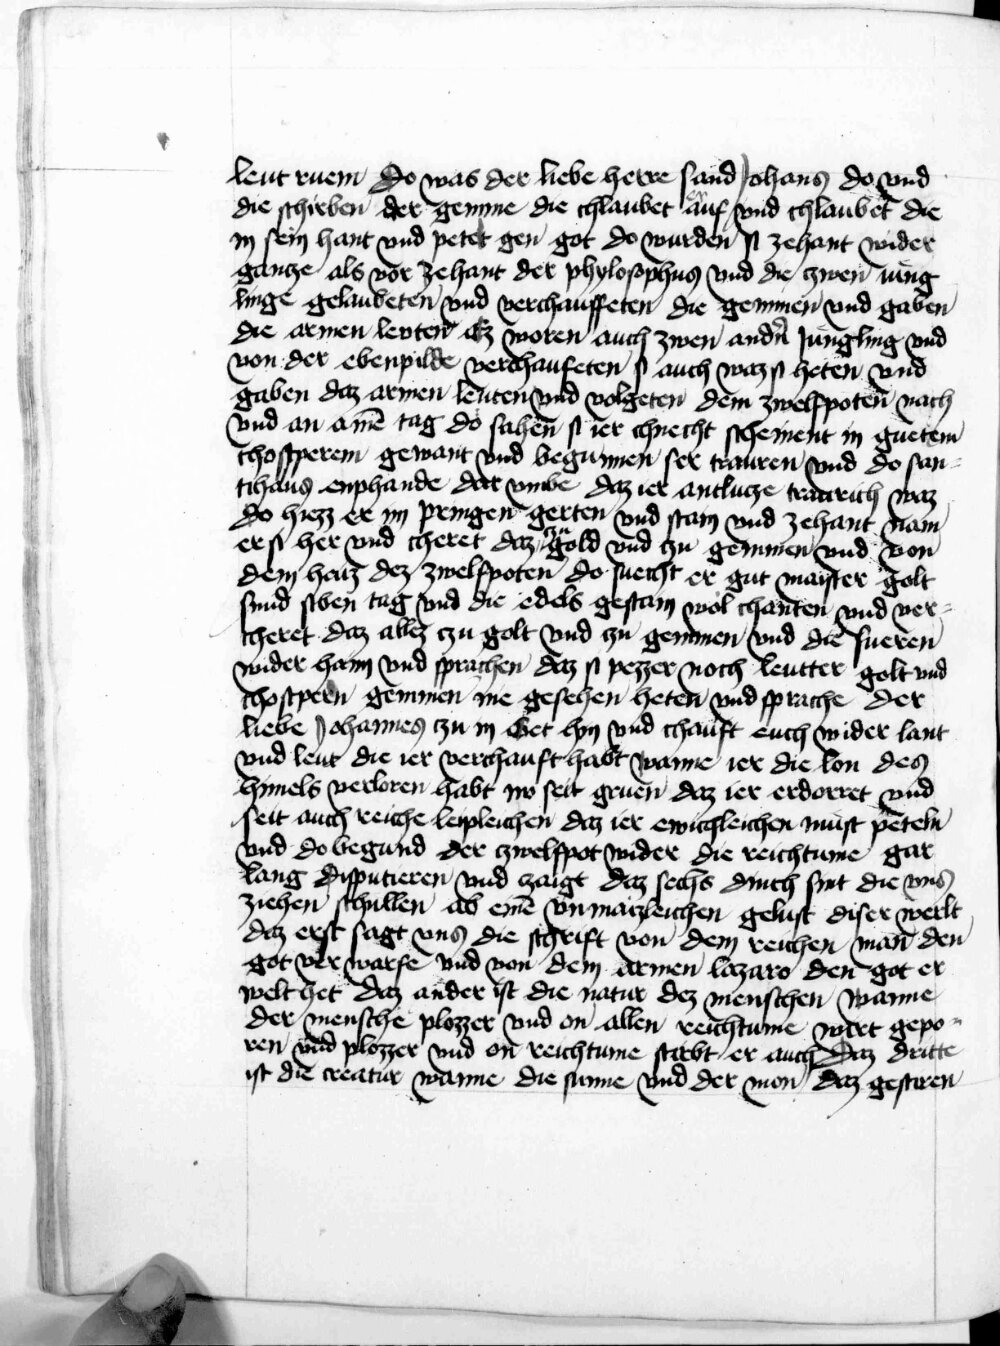 leut ruem Do was der liebe herre sand Johans do und
die schirben der gemme die chlaubet er auf und chlaubet die
in sein hant und petet gen got do wurden si zehant wider
gantze als vor zehant der phylosophus und die czwen iung
linge gelaubeten und verchauffeten die gemmen und gaben
die armen levten Ez woren auch zwen andn̄ Jüngling und
von der ebenpilde verchaufeten si auch waz si heten und
gaben daz armen leuten und volgeten dem zwelfpoten nach
und an ainē tag do sahen si ier chnecht scheinent in guetem
chostperem gewant und begunnen ser trauren und do san=
tihans enphande dar umbe daz ier antlucze traurich waz
do hiezz er im pringen gerten und stain und zehant nam
er si her und cheret daz zu gold und czu gemmen und von
dem haiz dez zwelfpoten do suecht er gut maister golt
smid siben tag und die edels gestain wol chanten und ver=
cheret daz allez czu golt und czu gemmen und die fueren
wider haim und sprachen daz si pezzer noch leutter golt und
chostpern gemmen nie gesehen heten und sprache der
liebe Johannes czu in Get hin und chauft euch wider lant
und leut die ier verchauft habt wanne ier die lon des
himels verloren habt nv seit gruen daz ier erdorret und
seit auch reiche leipleichen daz ier ewichleichen müst peteln
und do begund der czwelfpot wider die reichtume gar
lang disputieren und czaigt daz sechs dinch sint die uns
ziehen schullen ab einē unmäzleichen gelust diser werlt
daz erst sagt uns die schrift von dem reichen man den
got verwarfe und von dem armen lazaro den got er
welt het Daz ander ist die natur dez menschen wanne
der mensche plozzer und on allen reichtume wirt gepo=
ren und plozzer und on reichtume stirbt er auch Daz dritte
ist die creatur wanne die sunne und der mon daz gestiren